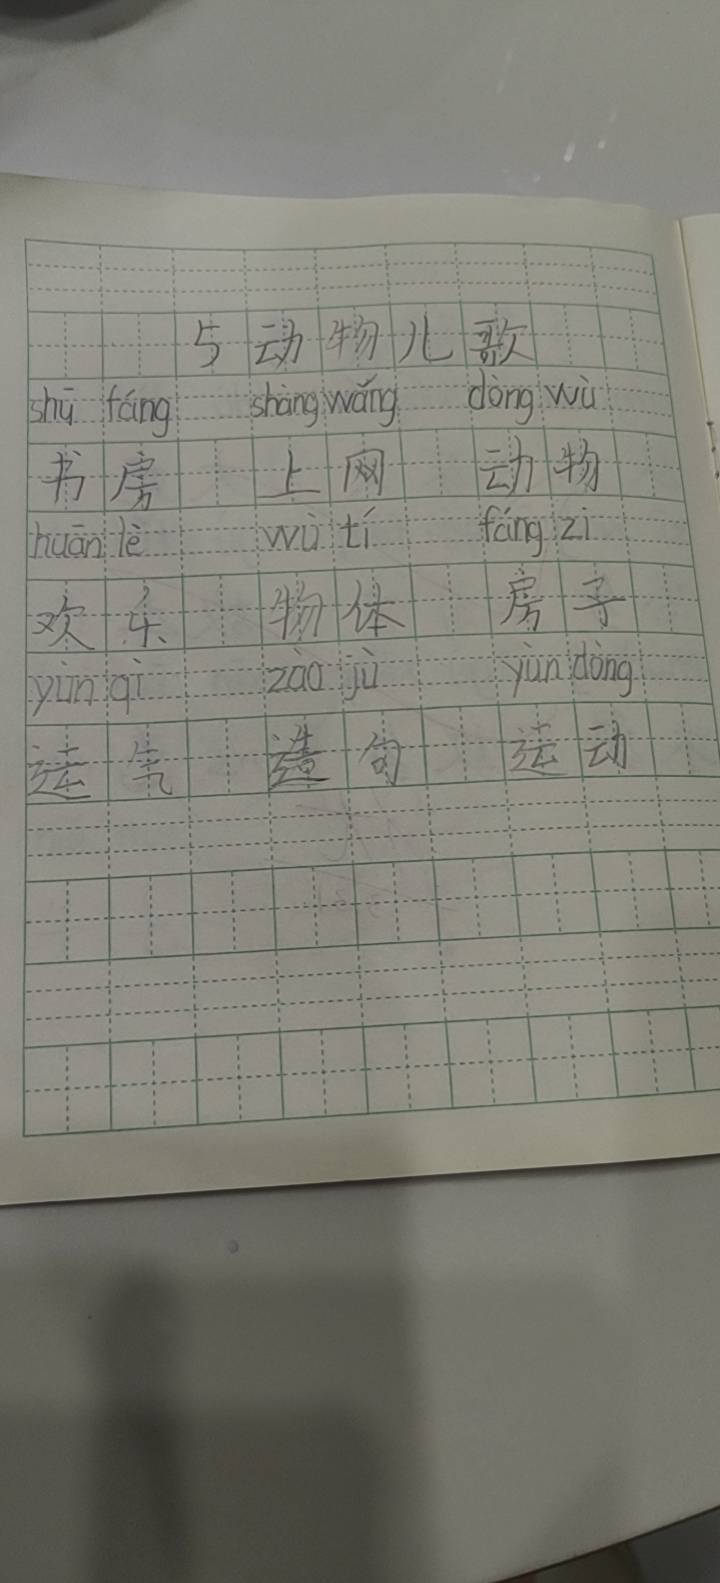 5动物儿歌
shū fáng shàng wǎng dòng wù
书房 上网 动物
huān lè wù tǐ fáng zi
欢乐 物体 房子
yùn qì zào jù yùn dòng
运气 造句 运动